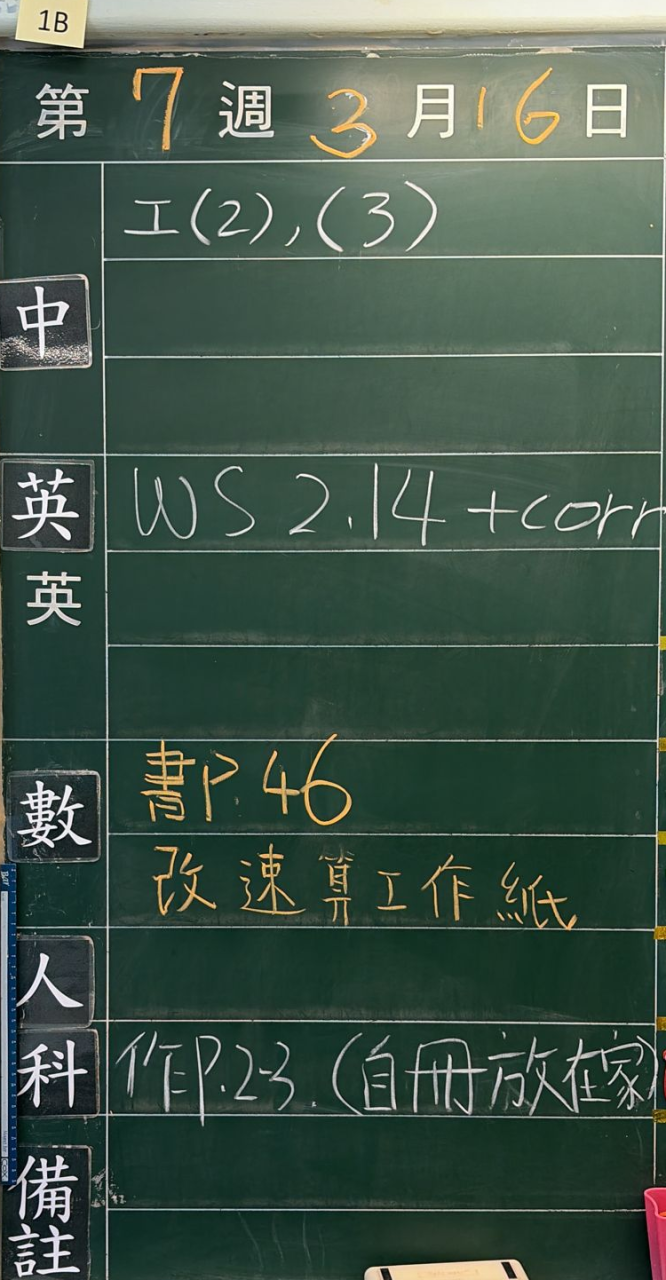 1B
第7週3月16日
中
工(2),(3)
英
WS 2.14 +corr
英
數
書P.46
改速算工作紙
人
科
作P.2-3.(自冊放在家)
備註